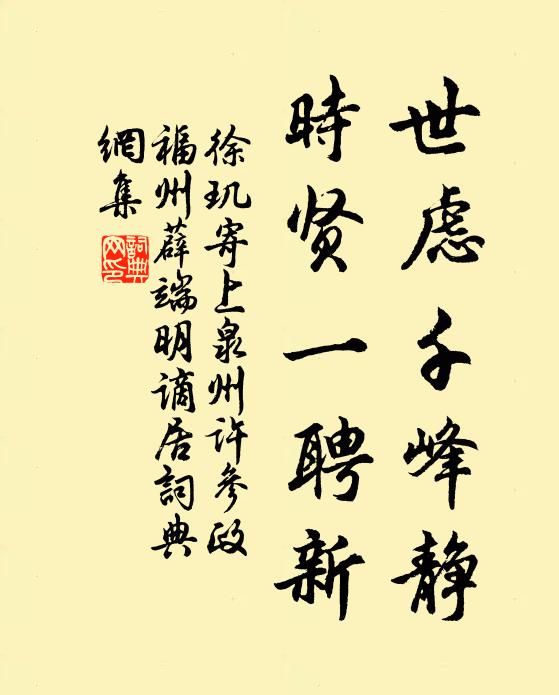 世虑千峰静
时贤一聘新
徐玑寄上泉州许参政
福州薜端明谪居詞典
網集
詞典網印